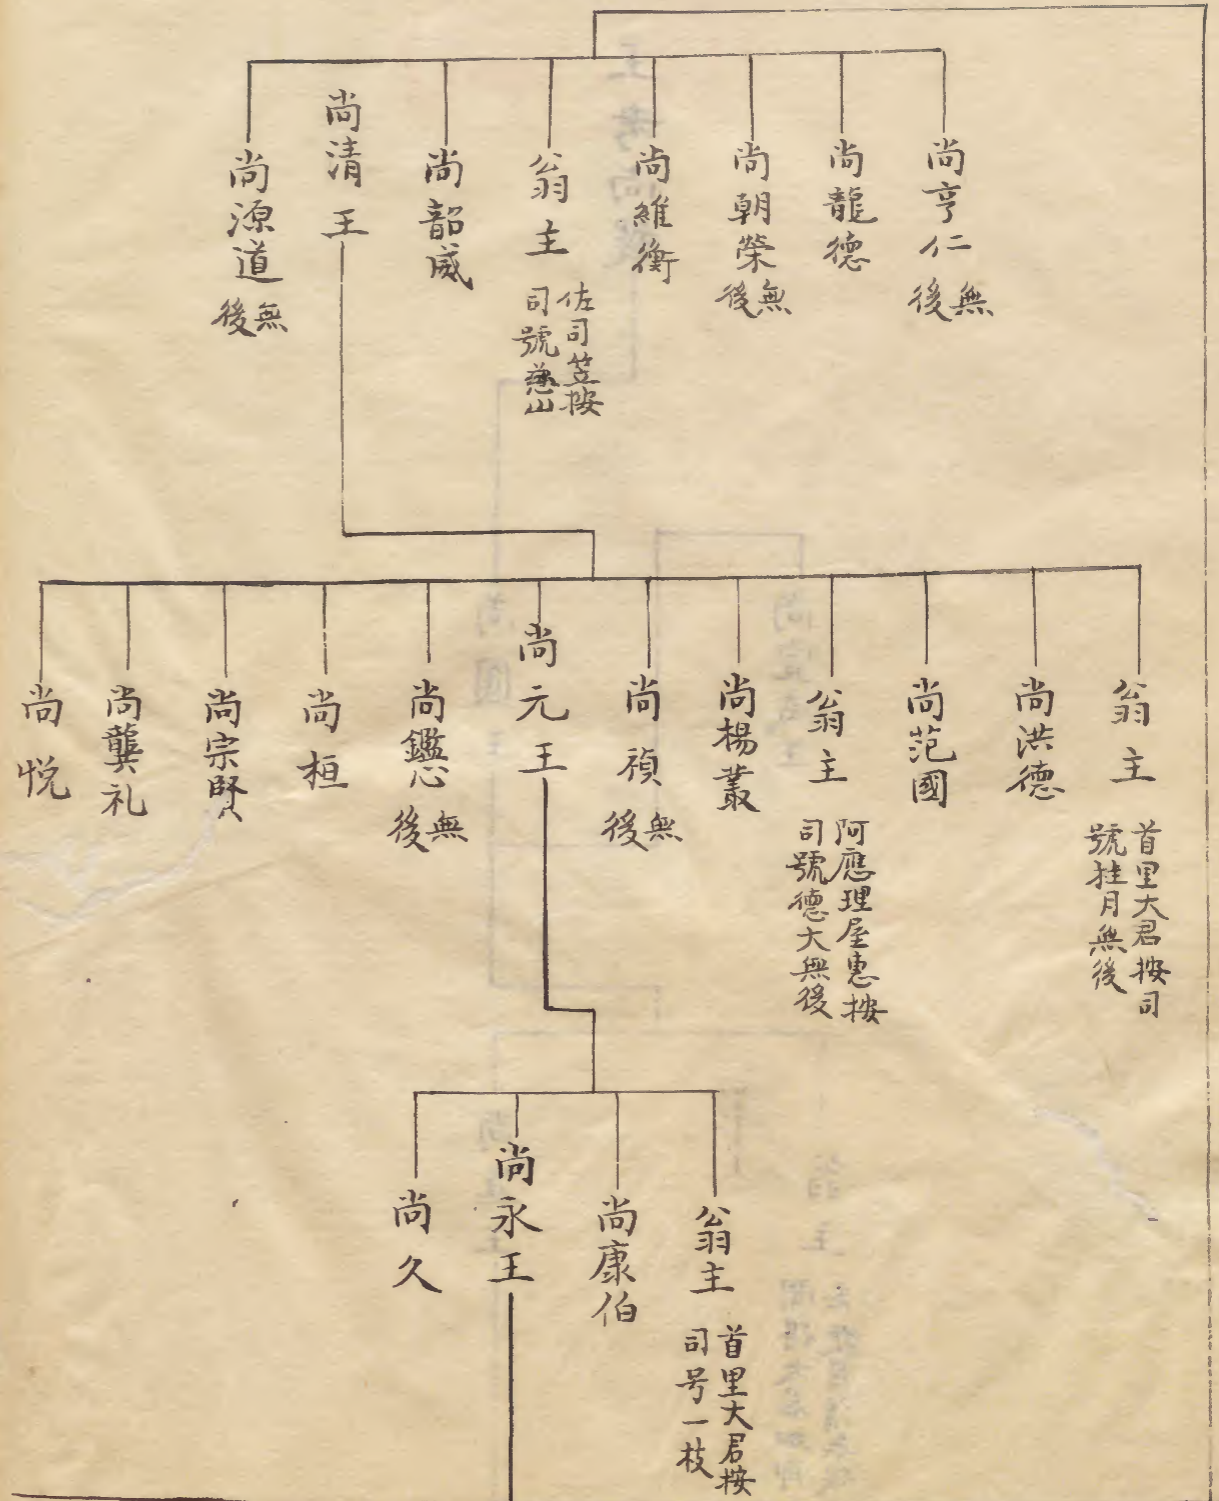 尚亨仁
無
後
尚龍德
尚朝榮
無
後
尚維衡
翁主
佐司笠按
司號慈山
尚韶威
尚清王
尚源道
無
後
翁主
首里大君按司
號桂月無後
尚洪德
尚范國
翁主
阿應理屋惠按
司號德大無後
尚楊叢
尚禎
無
後
尚元王
尚鑑心
無
後
尚桓
尚宗賢
尚龔礼
尚悦
翁主
首里大君按
司号一枝
尚康伯
尚永王
尚久